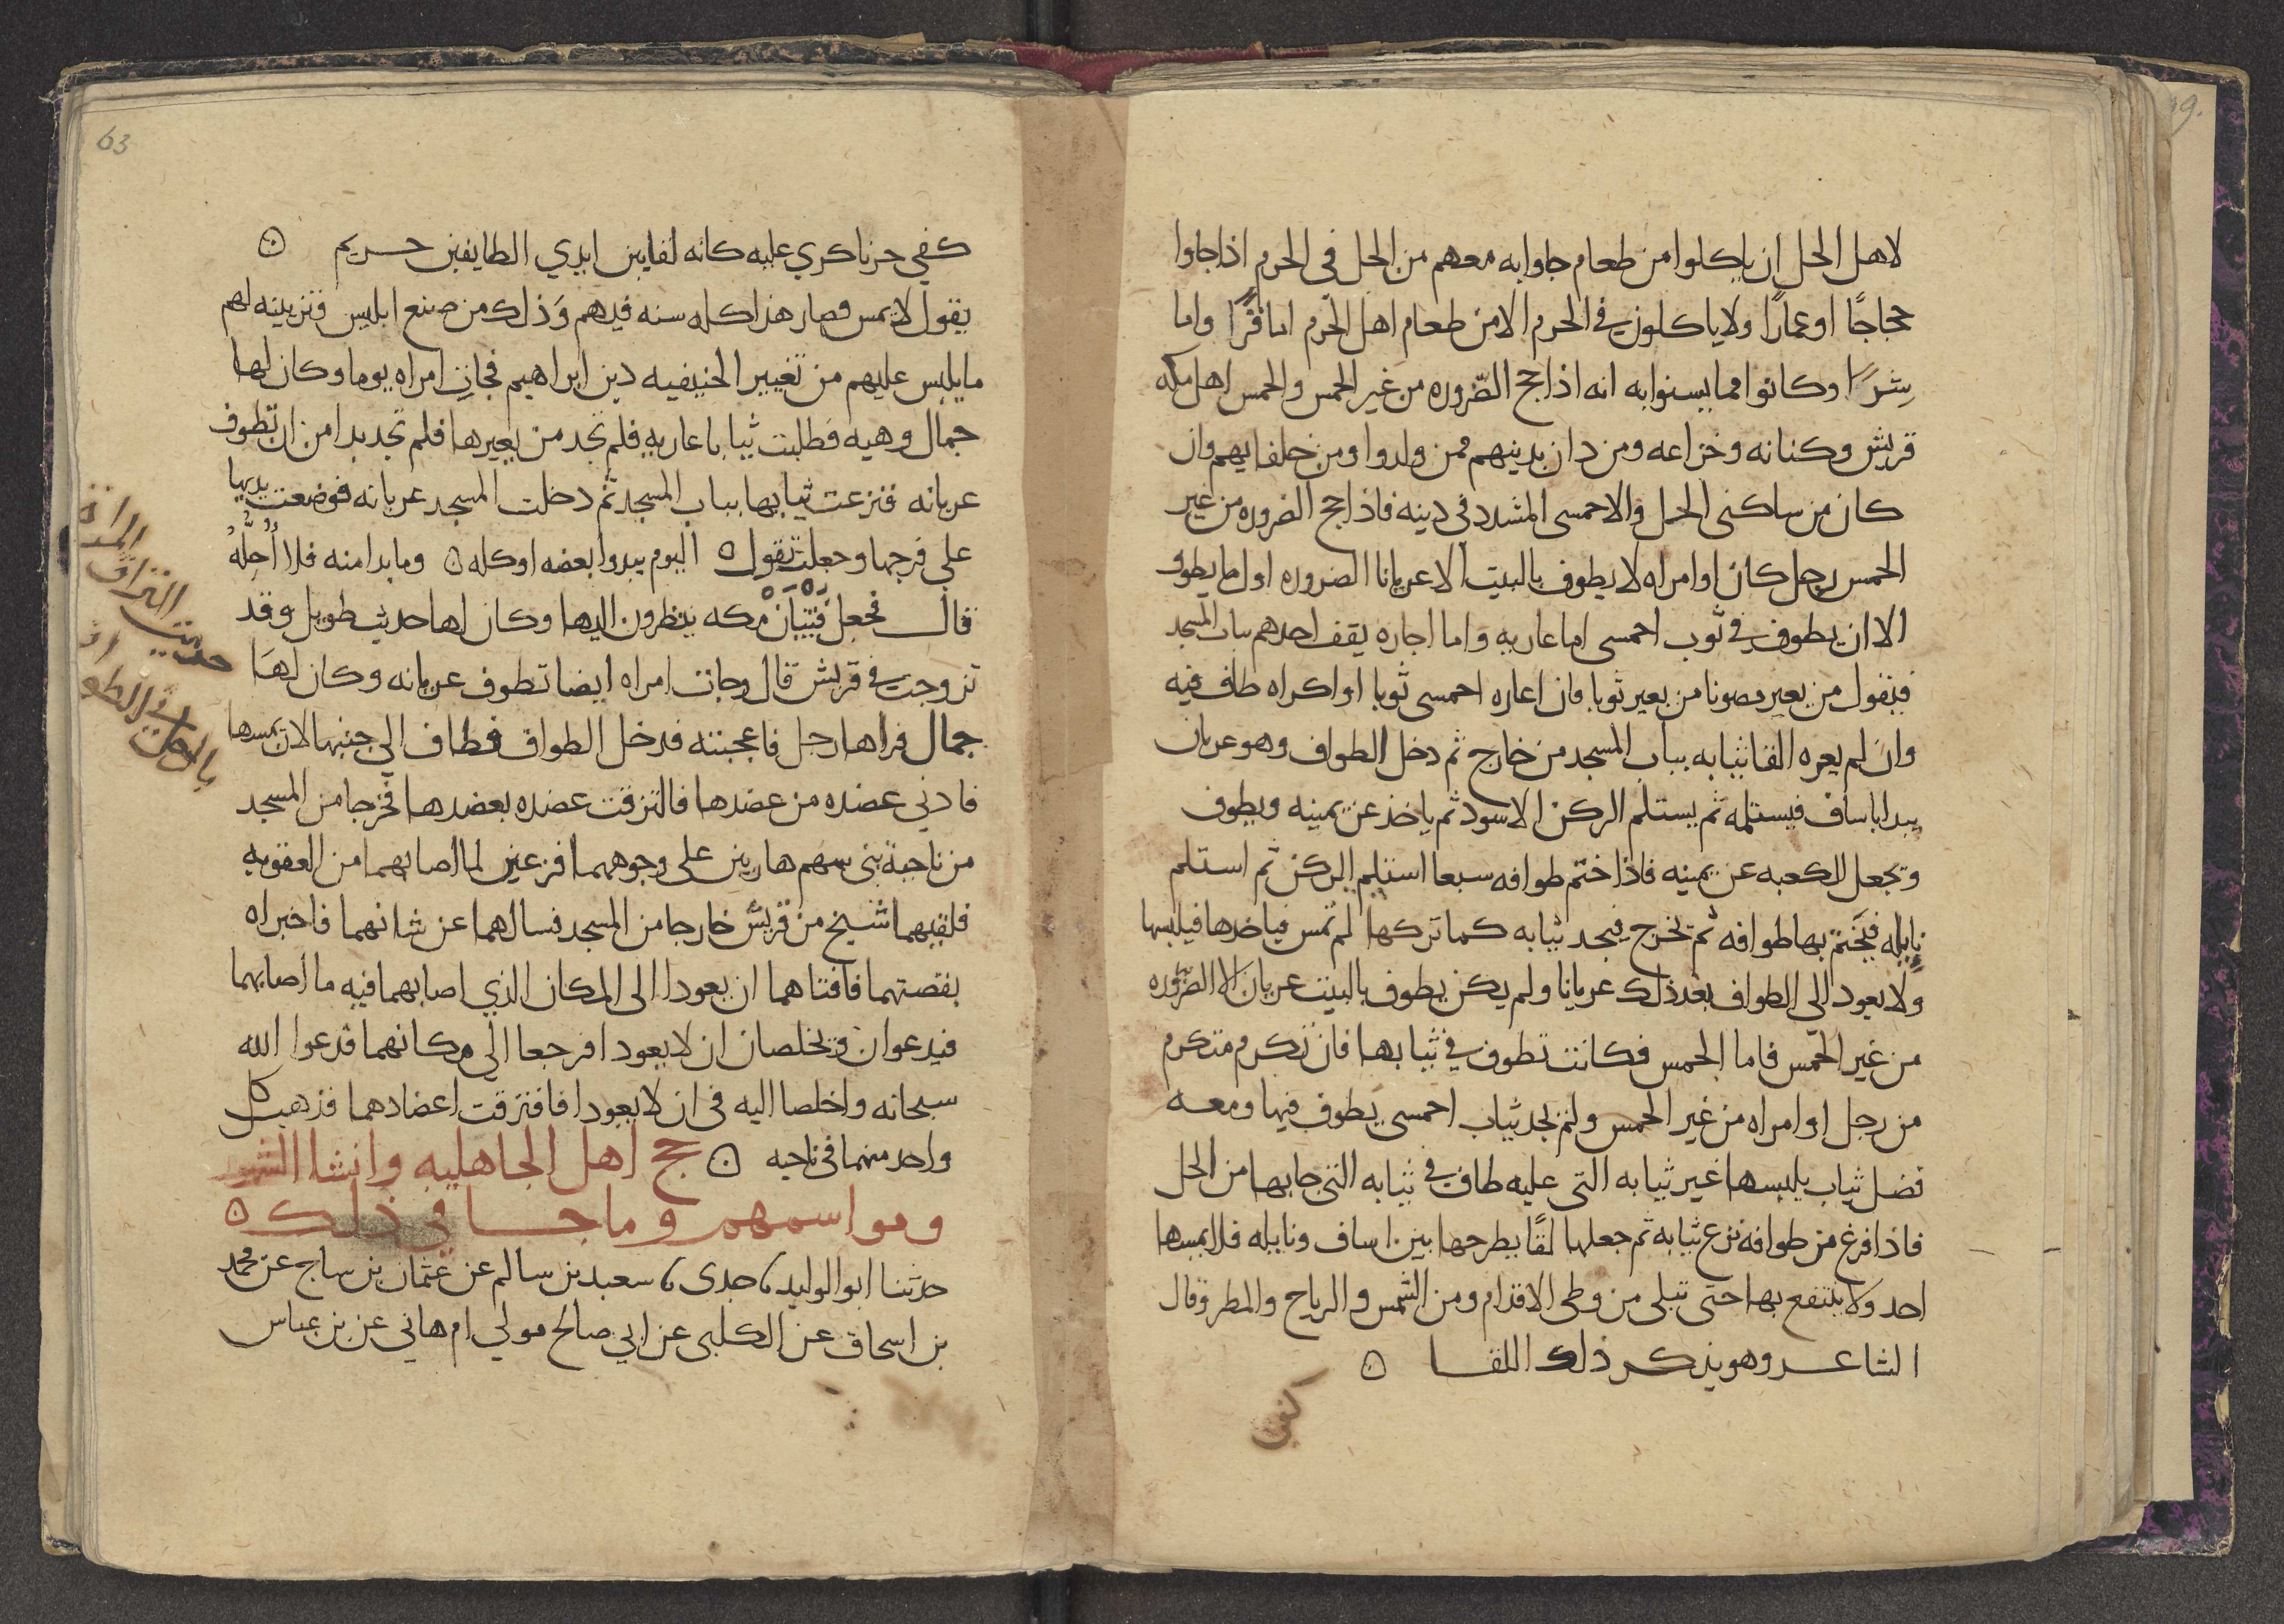 لاهل الحل ان ياكلوا من طعام جاوا به معهم من الحل في الحرم اذا جاوا
حجاجًا او عمارًا ولا ياكلون في الحرم الا من طعام اهل الحرم اما قرًا واما
شرًا وكانوا مما يسنوا به انه اذا حج الصّروره من غير الحمس والحمس اهل مكه
قريش وكنانه وخزاعه ومن دان بدينهم ممن ولدوا ومن حلفايهم وان
كان من ساكنى الحل والاحمسى المشدد فى دينه فاذا حج الصروره من غير
الحمس رجل كان او امراه لا يطوف بالبيت الا عريانا الصروره اول ما يطوف
الا ان يطوف في ثوب احمسى اما عاريه واما اجاره يقف احدهم بباب المسجد
فيقول من يعير مصونا من يعير ثوبا فان اعاره احمسى ثوبا او اكراه طاف فيه
وان لم يعره القا ثيابه بباب المسجد من خارج ثم دخل الطواف وهو عريان
يبدا باساف فيستلمه ثم يستلم الركن الاسود ثم ياخذ عن يمينه ويطوف
وتجعل الكعبه عن يمينه فاذا ختم طوافه سبعا استلم الركن ثم استلم
نايله فيختم بها طوافه ثم تخرج فيجد ثيابه كما تركها لم تمس فياخدها فيلبسها
ولا يعود الى الطواف بعد ذلك عريانا ولم يكن يطوف بالبيت عريان الا الصروره
من غير الحمس فاما الحمس فكانت تطوف في ثيابها فان تكرم متكرم
من رجل او امراه من غير الحمس ولم يجد ثياب احمسى يطوف فيها ومعه
فضل ثياب يلبسها غير ثيابه التى عليه طاف في ثيابه التى جا بها من الحل
فاذا فرغ من طوافه نزع ثيابه ثم جعلها لقًا يطرحها بين اساف ونايله فلا يمسها
احد ولا ينتفع بها حتى تبلى من وطى الاقدام ومن الشمس والرياح والمطر وقال
الشاعر وهو يذكر ذلك اللقا ه
كفى
63
كفي حزنا كري عليه كانه لقا بين ايدي الطايفين حريم ه
يقول لا يمس فصار هذا كله سنه فيهم وَذلك من صنع ابليس وتزيينه لهم
ما يلبس عليهم من تغيير الحنيفيه دين ابراهيم فجات امراه يوما وكان لها
جمال وهيه فطلبت ثيابا عاريه فلم تجد من يعيرها فلم تجد بدا من ان تطوف
عريانه فنزعت ثيابها بباب المسجد ثم دخلت المسجد عريانه فوضعت يديها
على فرجها وجعلت تقول ه اليوم يبدوا بعضه او كله ه وما بدا منه فلا اُحِلُّهُ
قال فجعل فتيان مكه ينظرون اليها وكان لها حديث طويل وقد
تزوجت في قريش قال وجات امراه ايضا تطوف عريانه وكان لهَا
جمال فراها رجل فاعجبته فدخل الطواف فطاف الي جنبها لان يمسها
فادني عضده من عضدها فالتزقت عضده بعضدها فخرجا من المسجد
من ناحية بنى سهم هاربين على وجوههما فزعين لما اصابهما من العقوبه
فلقيهما شيخ من قريش خارجا من المسجد فسالهما عن شانهما فاخبراه
بقصتهما فافتاهما ان يعودا الى المكان الذي اصابهما فيه ما اصابهما
فيدعوان ويخلصان ان لا يعودا فرجعا الى مكانهما فدعوا الله
سبحانه واخلصا اليه فى ان لا يعودا فافترقت اعضادهما فذهب كل
واحد منهما فى ناحيه ه حج اهل الجاهليه وانشا الشهور
ومواسمهم وما جا فى ذلك ه
حدثنا ابو الوليد جدى سعيد بن سالم عن عثمان بن ساج عن محمد
بن اسحاق عن الكلبى عن ابي صالح مولي ام هاني عن بن عباس
حديث التزاق المراة
بالرجل في الطواف